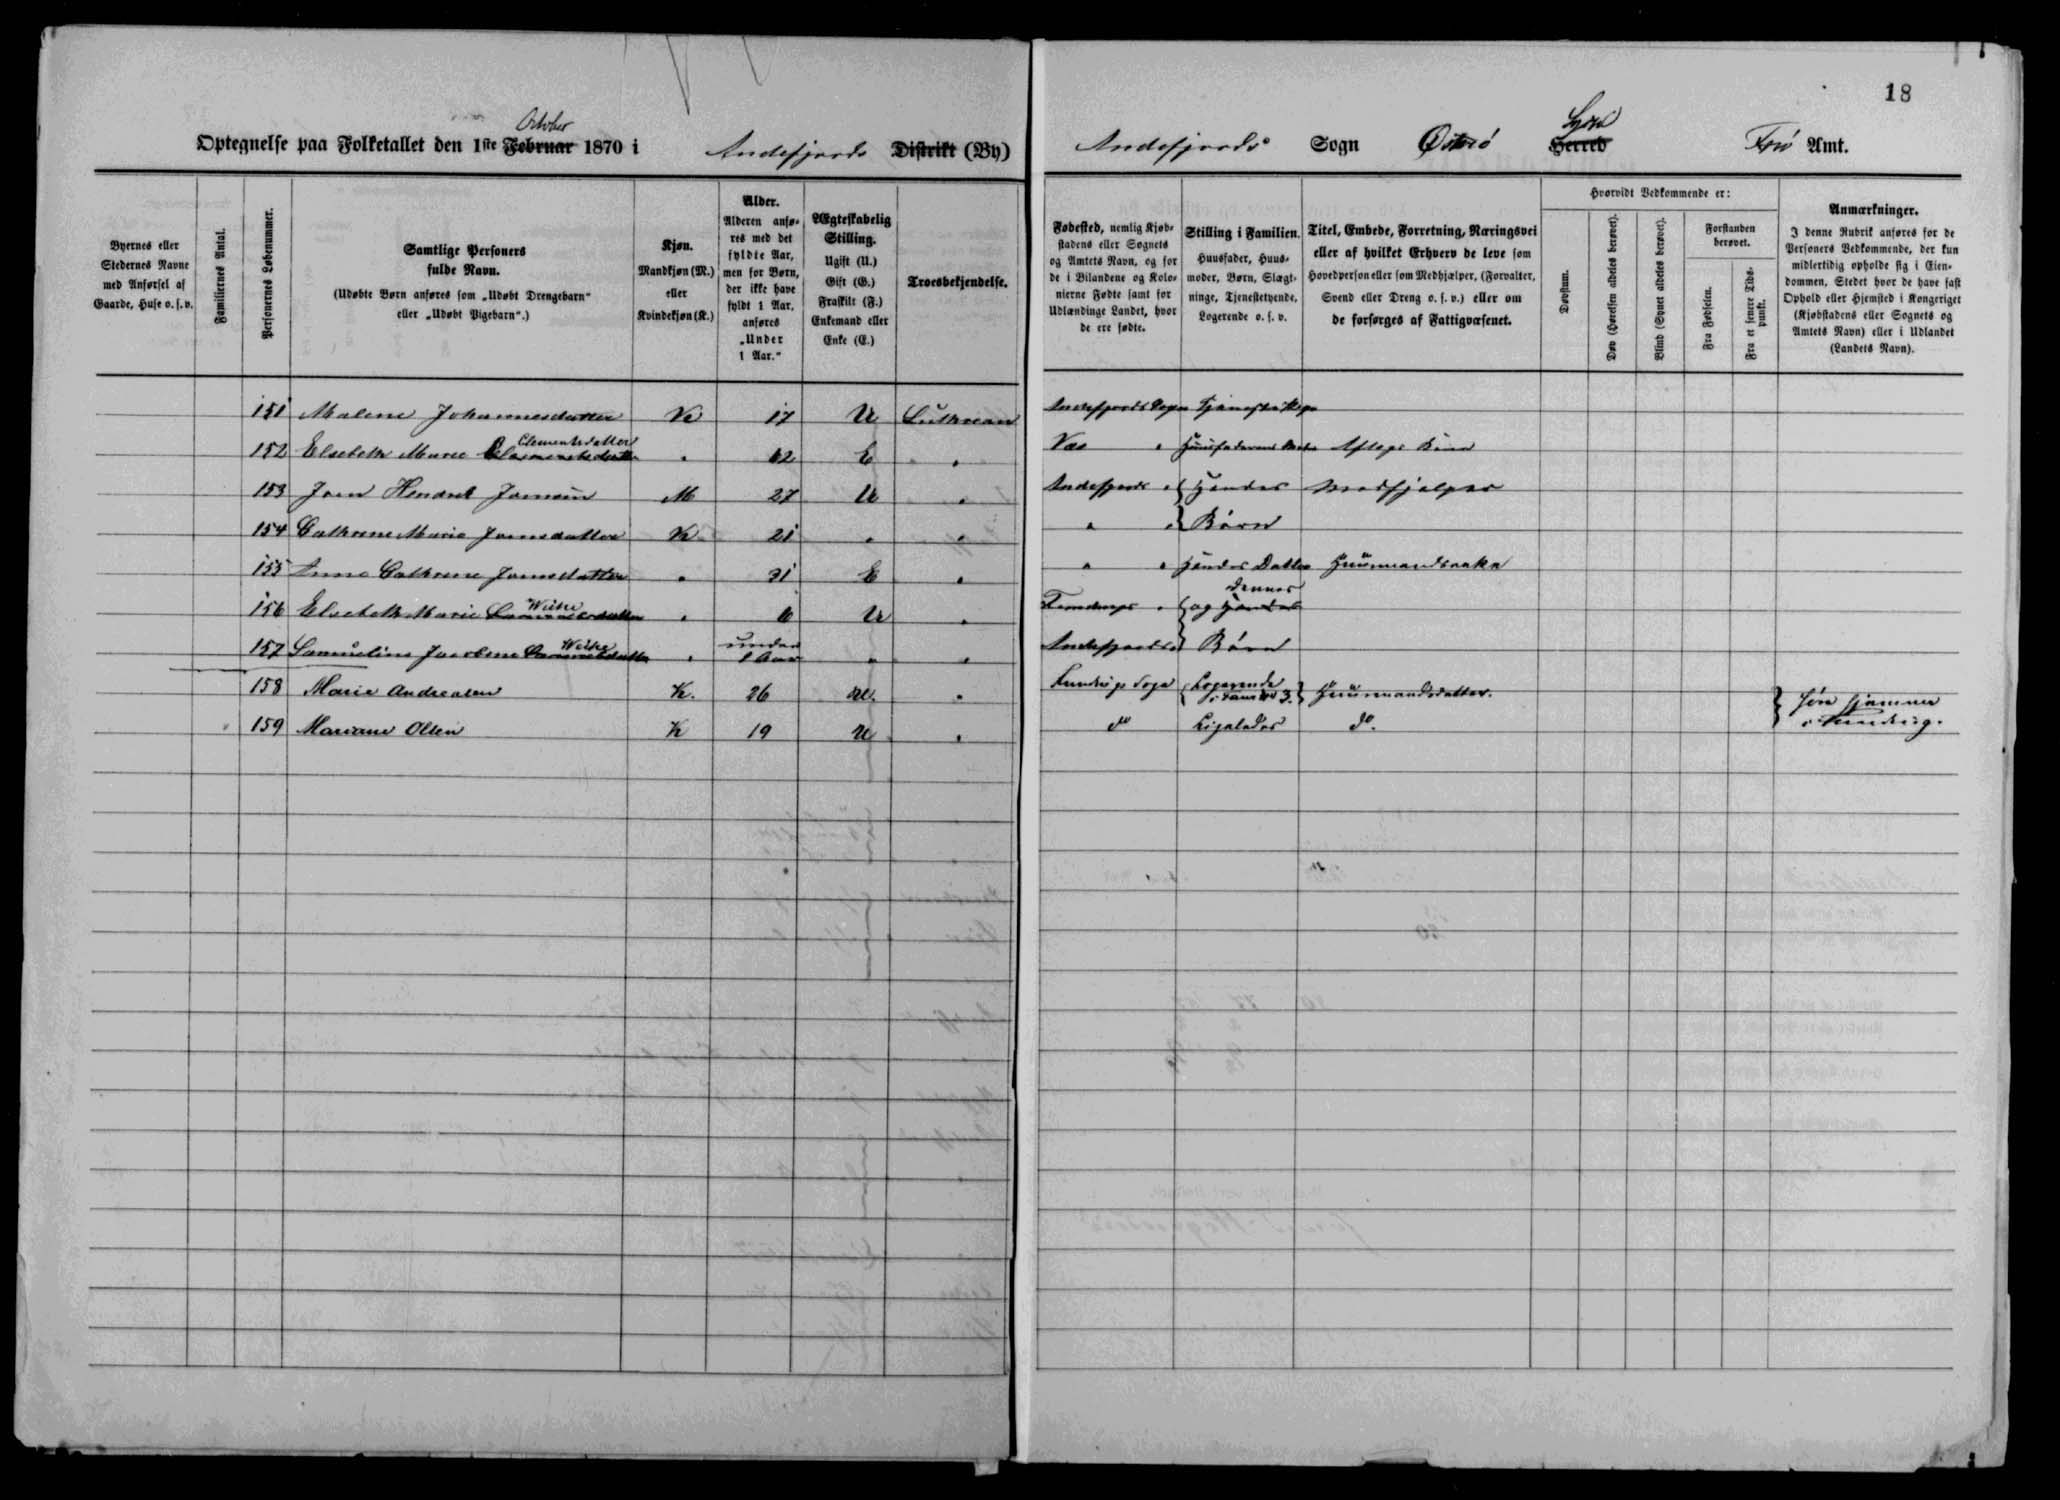 18
October
Optegnelse paa Folketallet den 1ste Februar 1870 i Andefjords Distrikt (By)
Syssel
Andefjords Sogn Østerø Herred Færø Amt.
Byernes eller
Stedernes Navne
med Anførsel af
Gaarde, Huse o. s. v.
Familiernes Antal.
Personernes Løbenummer.
Samtlige Personers
fulde Navn.
(Udøbte Børn anføres som „Udøbt Drengebarn“
eller „Udøbt Pigebarn“.)
Kjøn.
Mandkjøn (M.)
eller
Kvindekjøn (K.)
Alder.
Alderen anfø-
res med det
fyldte Aar,
men for Børn,
der ikke have
fyldt 1 Aar,
anføres
„Under
1 Aar.“
Ægteskabelig
Stilling.
Ugift (U.)
Gift (G.)
Fraskilt (F.)
Enkemand eller
Enke (E.)
Troesbekjendelse.
Fødested, nemlig Kjøb-
stadens eller Sognets
og Amtets Navn, og for
de i Bilandene og Kolo-
nierne Fødte samt for
Udlændinge Landet, hvor
de ere fødte.
Stilling i Familien.
Huusfader, Huus-
moder, Børn, Slægt-
ninge, Tjenestetyende,
Logerende o. s. v.
Titel, Embede, Forretning, Næringsvei
eller af hvilket Erhverv de leve som
Hovedperson eller som Medhjælper, (Forvalter,
Svend eller Dreng o. s. v.) eller om
de forsørges af Fattigvæsenet.
Hvorvidt Vedkommende er:
Døvstum.
Døv (Hørelsen aldeles berøvet).
Blind (Synet aldeles berøvet).
Forstanden
berøvet.
Fra Fødselen.
Fra et senere Tids-
punkt.
Anmærkninger.
I denne Rubrik anføres for de
Personers Vedkommende, der kun
midlertidig opholde sig i Eien-
dommen, Stedet hvor de have fast
Ophold eller Hjemsted i Kongeriget
(Kjøbstadens eller Sognets og
Amtets Navn) eller i Udlandet
(Landets Navn).
151 Malene Johannesdatter K 17 U Luthrean Andefjords Sogn Tjenestepige
Clementsdatter
152 Elsebeth Marie 62 E " Næs " Huusfaderens Moder Aftægts Kone
153 Joen Hendrik Joensen M 27 U " Andefjords " { Hendes Medhjelper
154 Cathrine Marie Joensdatter K 21 " " " " { Børn
155 Anna Cathrine Joensdatter " 31 E " " " Hendes Datter Huusmandsenke
Weihe dennes
156 Elsebeth Marie " 6 U " " { og Hendes
Weihe under
157 Samueline Jacobine " 1 Aar " " Andefjords " Børn
158 Marie Andreasen K. 26 U. " Kundrigs Sogn { Logerende
i Fam: No 3. } Huusmandsdatter. }
159 Mariane Olsen K 19 U " do Ligeledes do. i Kundrig.